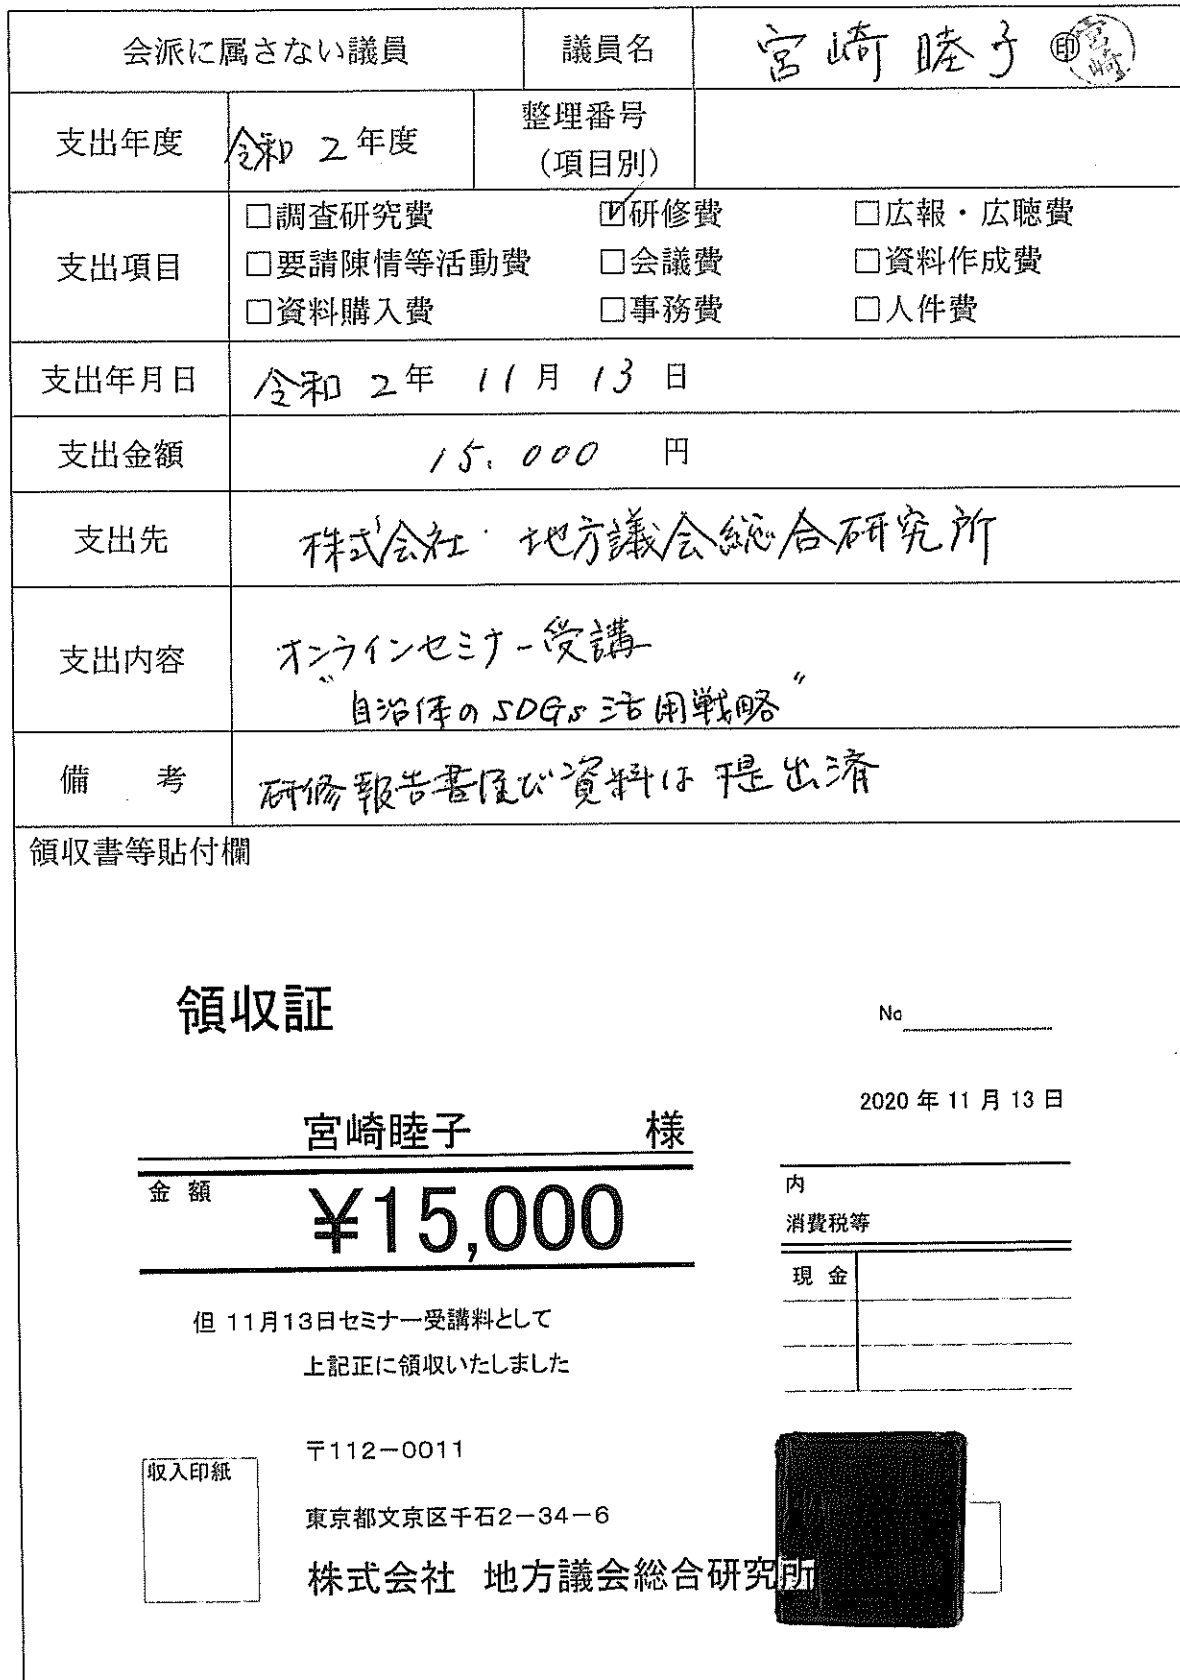 会派に属さない議員 議員名 宮崎 睦子 ㊞ 宮崎
支出年度 令和 2 年度 整理番号
(項目別)
支出項目 □調査研究費 ☑研修費 □広報・広聴費
□要請陳情等活動費 □会議費 □資料作成費
□資料購入費 □事務費 □人件費
支出年月日 令和 2 年 11 月 13 日
支出金額 15,000 円
支出先 株式会社 地方議会総合研究所
支出内容 オンラインセミナー受講
"自治体のSDGs活用戦略"
備 考 研修報告書及び資料は提出済
領収書等貼付欄
領収証
No
2020 年 11 月 13 日
宮崎睦子 様
金 額 ¥15,000
内
消費税等
現 金
但 11月13日セミナー受講料として
上記正に領収いたしました
収入印紙
〒112-0011
東京都文京区千石2-34-6
株式会社 地方議会総合研究所